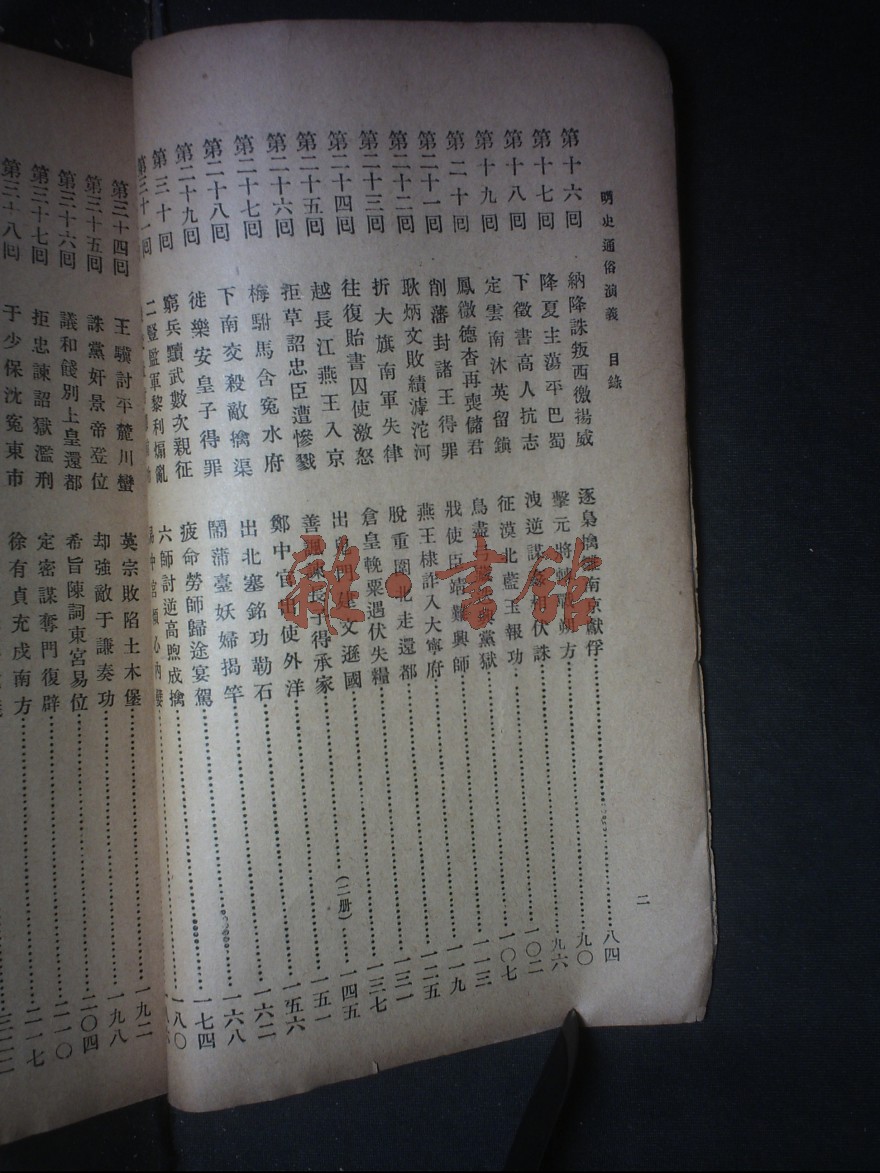 明史通俗演義 目錄
二
第十六回 納降誅叛西徼揚威 逐梟擒 南京獻俘 八四
第十七回 降夏主蕩平巴蜀 擊元將 朔方 九〇
第十八回 下徵書高人抗志 洩逆謀 相伏誅 九六
第十九回 定雲南沐英留鎮 征漠北藍玉報功 一〇二
第二十回 鳳微德杳再喪儲君 鳥盡弓 黨獄 一〇七
第二十一回 削藩封諸王得罪 戕使臣靖難興師 一一三
第二十二回 耿炳文敗績滹沱河 燕王棣詐入大寧府 一一九
第二十三回 折大旗南軍失律 脫重圍北走還都 一二五
第二十四回 往復貽書囚使激怒 倉皇輓粟遇伏失糧 一三一
第二十五回 越長江燕王入京 出鬼門建文遜國 一三七
第二十六回 拒草詔忠臣遭慘戮 善諷諫長子得承家 (二册) 一四五
第二十七回 梅駙馬含冤水府 鄭中官出使外洋 一五一
第二十八回 下南交殺敵擒渠 出北塞銘功勒石 一五六
第二十九回 徙樂安皇子得罪 鬧蒲臺妖婦揭竿 一六二
第三十回 窮兵黷武數次親征 疲命勞師歸途宴駕 一六八
第三十一回 二豎監軍黎利煽亂 六師討逆高煦成擒 一七四
一八〇
第三十四回 王驥討平麓川蠻 英宗敗陷土木堡 一九二
第三十五回 誅黨奸景帝登位 却強敵于謙奏功 一九八
第三十六回 議和餞別上皇還都 希旨陳詞東宮易位 二〇四
第三十七回 拒忠諫詔獄濫刑 定密謀奪門復辟 二一〇
第三十八回 于少保沈冤東市 徐有貞充戍南方 二一七
雜·書館